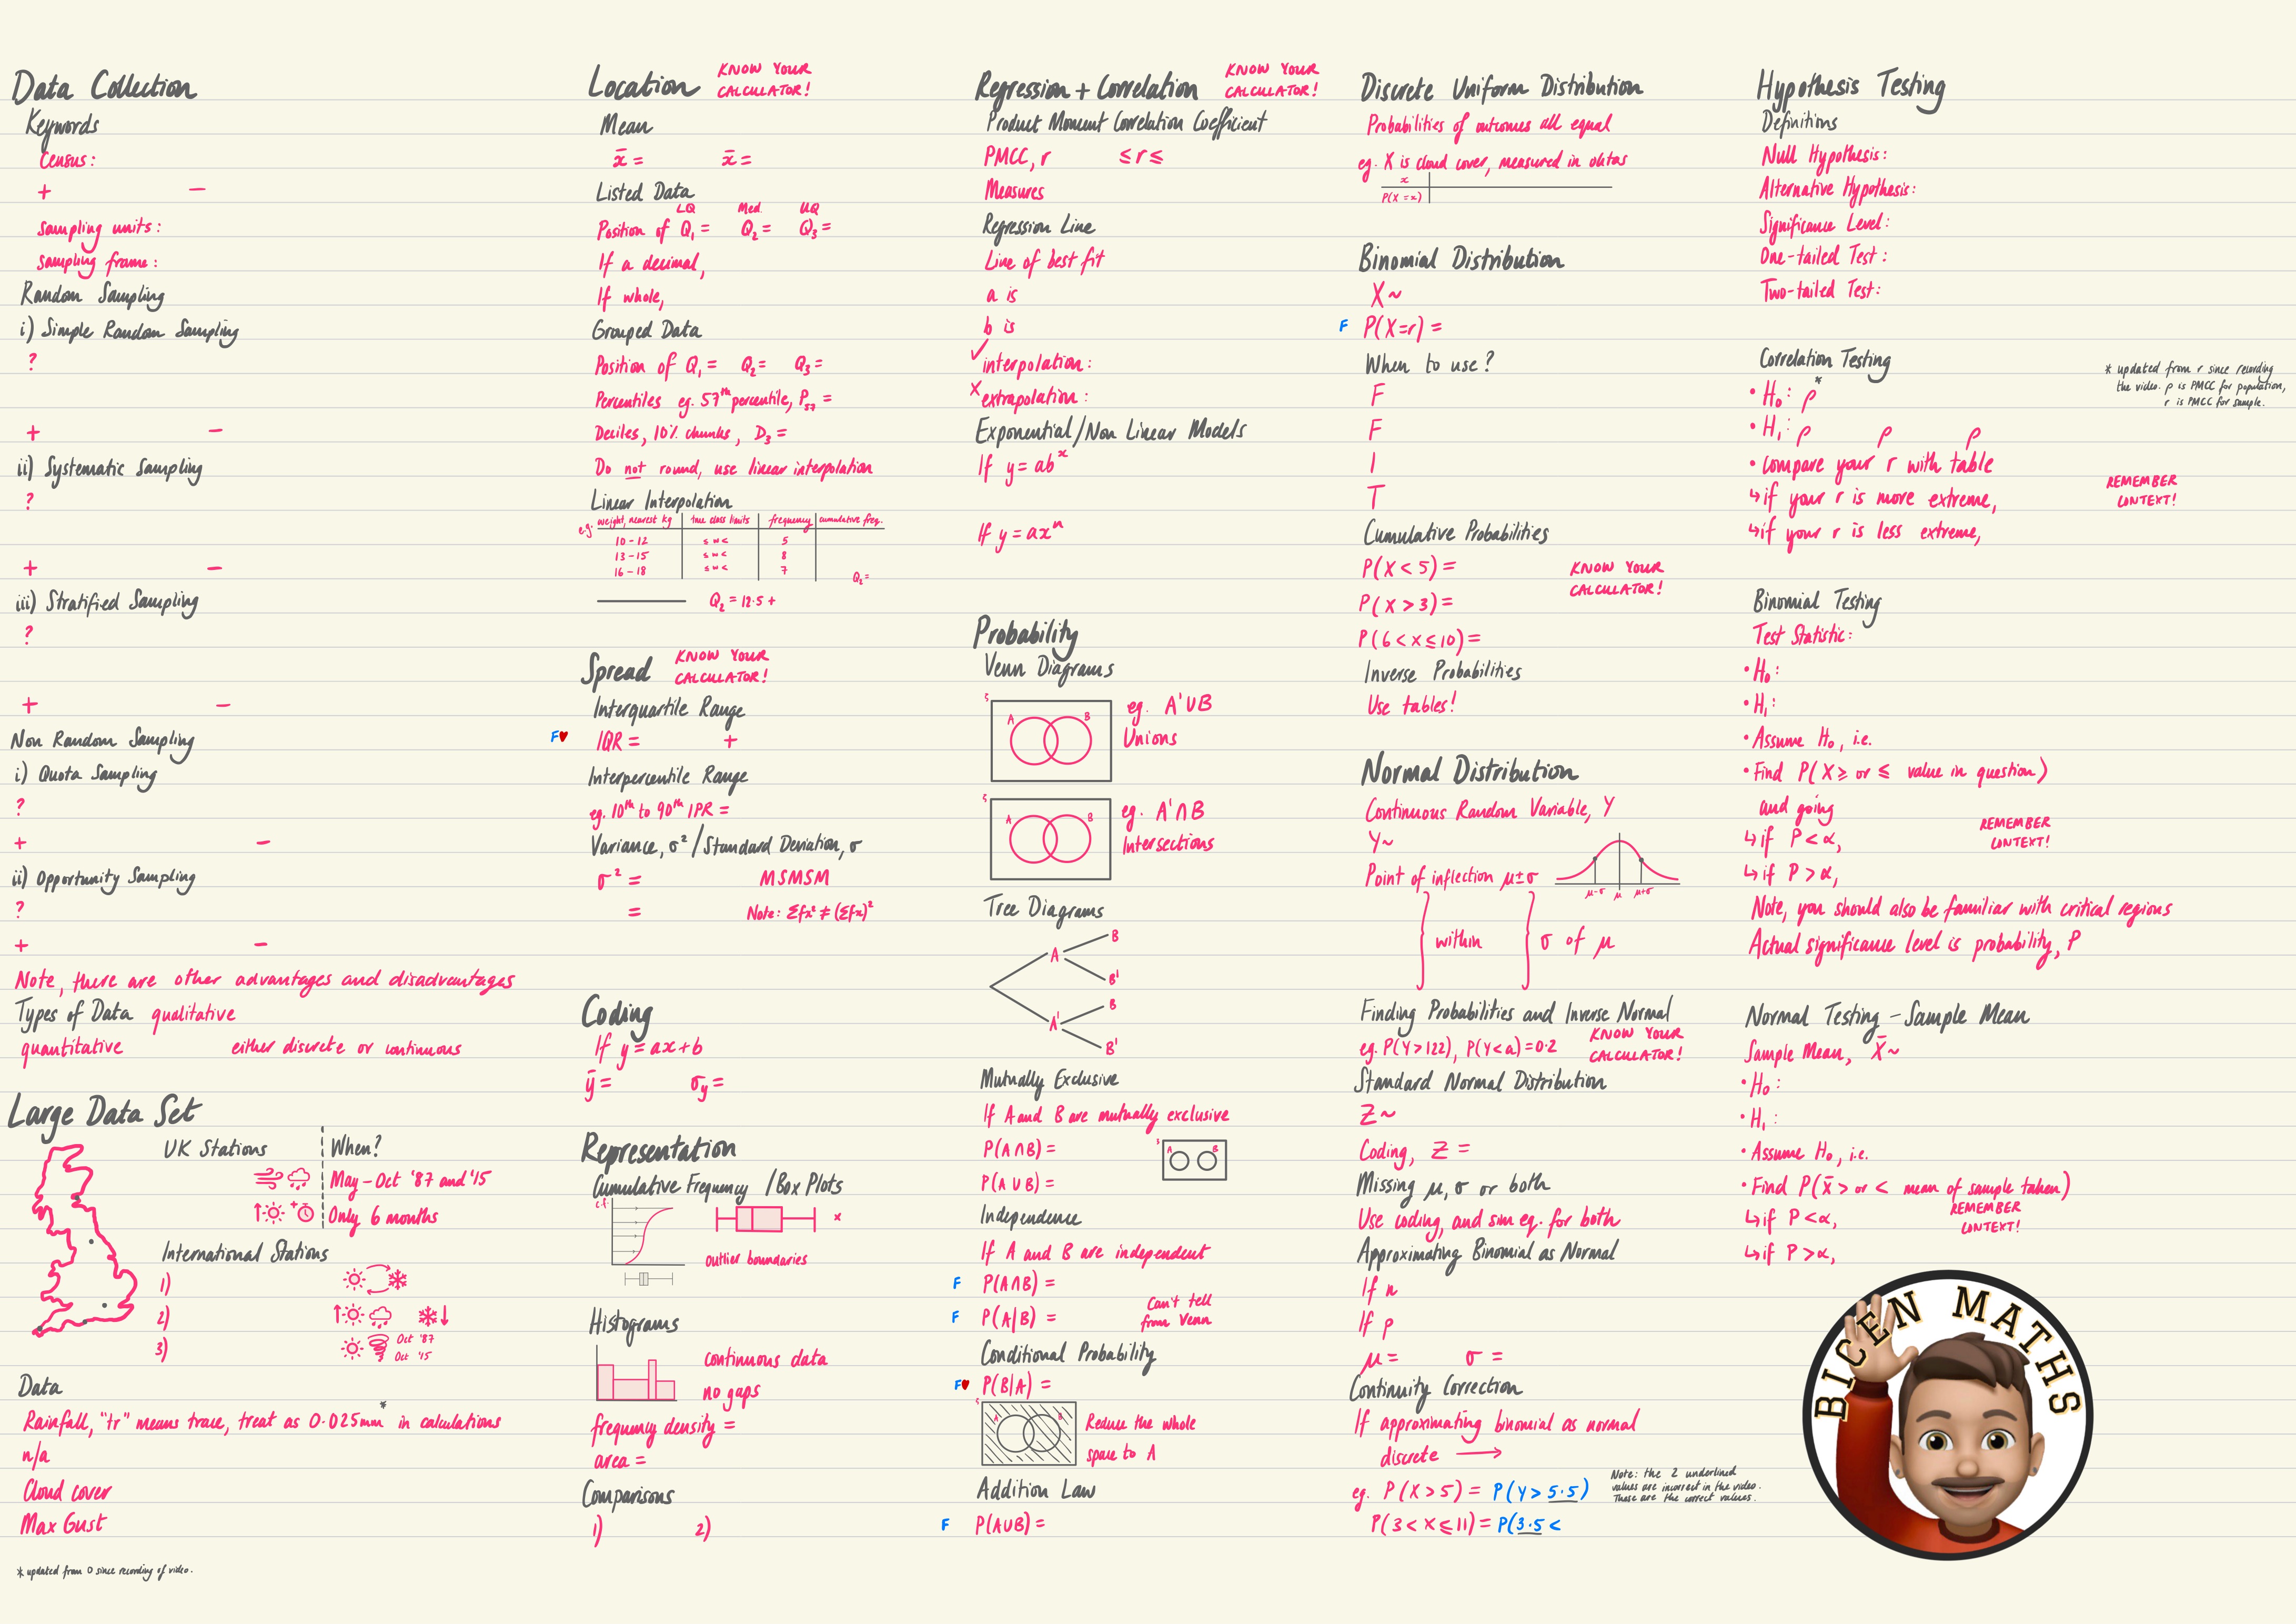 Data Collection
Keywords
Census:
+ −
Sampling units:
Sampling frame:
Random Sampling
i) Simple Random Sampling
?
+ −
ii) Systematic Sampling
?
+ −
iii) Stratified Sampling
?
+ −
Non Random Sampling
i) Quota Sampling
?
+ −
ii) Opportunity Sampling
?
+ −
Note, there are other advantages and disadvantages
Types of Data qualitative
quantitative either discrete or continuous
Large Data Set
UK Stations When?
May - Oct '87 and '15
Only 6 months
International Stations
1)
2)
3) Oct '87
Oct '15
Data
Rainfall, "tr" means trace, treat as 0.025mm* in calculations
n/a
Cloud cover
Max Gust
* updated from 0 since recording of video.
Location KNOW YOUR CALCULATOR!
Mean
x̄ = x̄ =
Listed Data
LQ Med. UQ
Position of Q₁ = Q₂ = Q₃ =
If a decimal,
If whole,
Grouped Data
Position of Q₁ = Q₂ = Q₃ =
Percentiles eg. 57th percentile, P₅₇ =
Deciles, 10% chunks, D₃ =
Do not round, use linear interpolation
Linear Interpolation
eg. weight, nearest kg true class limits frequency cumulative freq.
10-12 ≤ w < 5
13-15 ≤ w < 8
16-18 ≤ w < 7
Q₂ =
Q₂ = 12.5 +
Spread KNOW YOUR CALCULATOR!
Interquartile Range
F♥ IQR = +
Interpercentile Range
eg. 10th to 90th IPR =
Variance, σ² / Standard Deviation, σ
σ² = MSMSM
= Note: Σfx² ≠ (Σfx)²
Coding
If y = ax + b
ȳ = σy =
Representation
Cumulative Frequency / Box Plots
c.f. ×
outlier boundaries
Histograms
continuous data
no gaps
frequency density =
area =
Comparisons
1) 2)
Regression + Correlation KNOW YOUR CALCULATOR!
Product Moment Correlation Coefficient
PMCC, r ≤ r ≤
Measures
Regression Line
Line of best fit
a is
b is
✓ interpolation:
× extrapolation:
Exponential / Non Linear Models
If y = abˣ
If y = axⁿ
Probability
Venn Diagrams
A B eg. A'∪B
Unions
A B eg. A'∩B
Intersections
Tree Diagrams
B
A
B'
B
A'
B'
Mutually Exclusive
If A and B are mutually exclusive
P(A∩B) = A B
P(A∪B) =
Independence
If A and B are independent
F P(A∩B) =
F P(A|B) = Can't tell from Venn
Conditional Probability
F♥ P(B|A) =
A B Reduce the whole
space to A
Addition Law
F P(A∪B) =
Discrete Uniform Distribution
Probabilities of outcomes all equal
eg. X is cloud cover, measured in oktas
x
P(X=x)
Binomial Distribution
X~
F P(X=r) =
When to use?
F
F
I
T
Cumulative Probabilities
P(X < 5) = KNOW YOUR
P(X > 3) = CALCULATOR!
P(6 < X ≤ 10) =
Inverse Probabilities
Use tables!
Normal Distribution
Continuous Random Variable, Y
Y~
Point of inflection μ±σ
μ-σ μ μ+σ
within σ of μ
Finding Probabilities and Inverse Normal
eg. P(Y>122), P(Y<a)=0.2 KNOW YOUR CALCULATOR!
Standard Normal Distribution
Z~
Coding, Z =
Missing μ, σ or both
Use coding, and sim eq. for both
Approximating Binomial as Normal
If n
If p
μ = σ =
Continuity Correction
If approximating binomial as normal
discrete →
eg. P(X > 5) = P(Y > 5.5)
P(3 < X ≤ 11) = P(3.5 <
Note: the 2 underlined
values are incorrect in the video.
These are the correct values.
Hypothesis Testing
Definitions
Null Hypothesis:
Alternative Hypothesis:
Significance Level:
One-tailed Test:
Two-tailed Test:
Correlation Testing
• H₀: ρ*
• H₁: ρ ρ ρ
* updated from r since recording
the video. ρ is PMCC for population,
r is PMCC for sample.
• compare your r with table
↳ if your r is more extreme,
↳ if your r is less extreme,
REMEMBER
CONTEXT!
Binomial Testing
Test Statistic:
• H₀:
• H₁:
• Assume H₀, i.e.
• Find P(X ≥ or ≤ value in question)
and going
↳ if P < α,
↳ if P > α,
REMEMBER
CONTEXT!
Note, you should also be familiar with critical regions
Actual significance level is probability, P
Normal Testing - Sample Mean
Sample Mean, X̄~
• H₀:
• H₁:
• Assume H₀, i.e.
• Find P(X̄ > or < mean of sample taken)
↳ if P < α,
↳ if P > α,
REMEMBER
CONTEXT!
BICEN MATHS